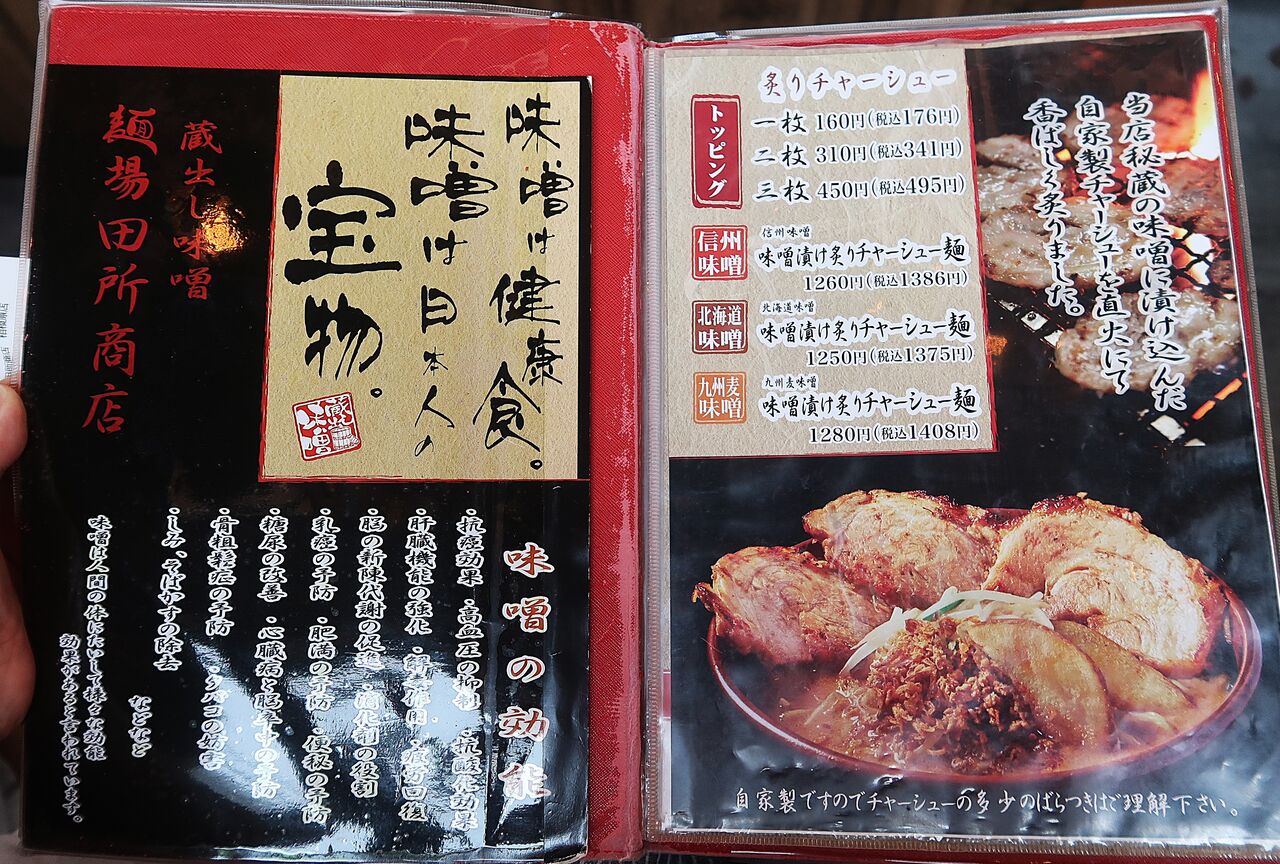 味噌は健康食。
味噌は日本人の
宝物。
蔵出し味噌
蔵出し味噌
麺場田所商店
味噌の効能
・抗癌効果・高血圧の抑制・抗酸化効果
・肝臓機能の強化・解毒作用・疲労回復
・脳の新陳代謝の促進・消化剤の役割
・乳癌の予防・肥満の予防・便秘の予防
・糖尿の改善・心臓病と脳卒中の予防
・骨粗鬆症の予防・タバコの妨害
・しみ、そばかすの除去
などなど
味噌は人間の体にたいして様々な効能
効果があると言われています。
炙りチャーシュー
トッピング
一枚 160円(税込176円)
二枚 310円(税込341円)
三枚 450円(税込495円)
信州
味噌
信州味噌
味噌漬け炙りチャーシュー麺
1260円(税込1386円)
北海道
味噌
北海道味噌
味噌漬け炙りチャーシュー麺
1250円(税込1375円)
九州麦
味噌
九州麦味噌
味噌漬け炙りチャーシュー麺
1280円(税込1408円)
当店秘蔵の味噌に漬け込んだ
自家製チャーシューを直火にて
香ばしく炙りました。
自家製ですのでチャーシューの多少のばらつきはご理解下さい。